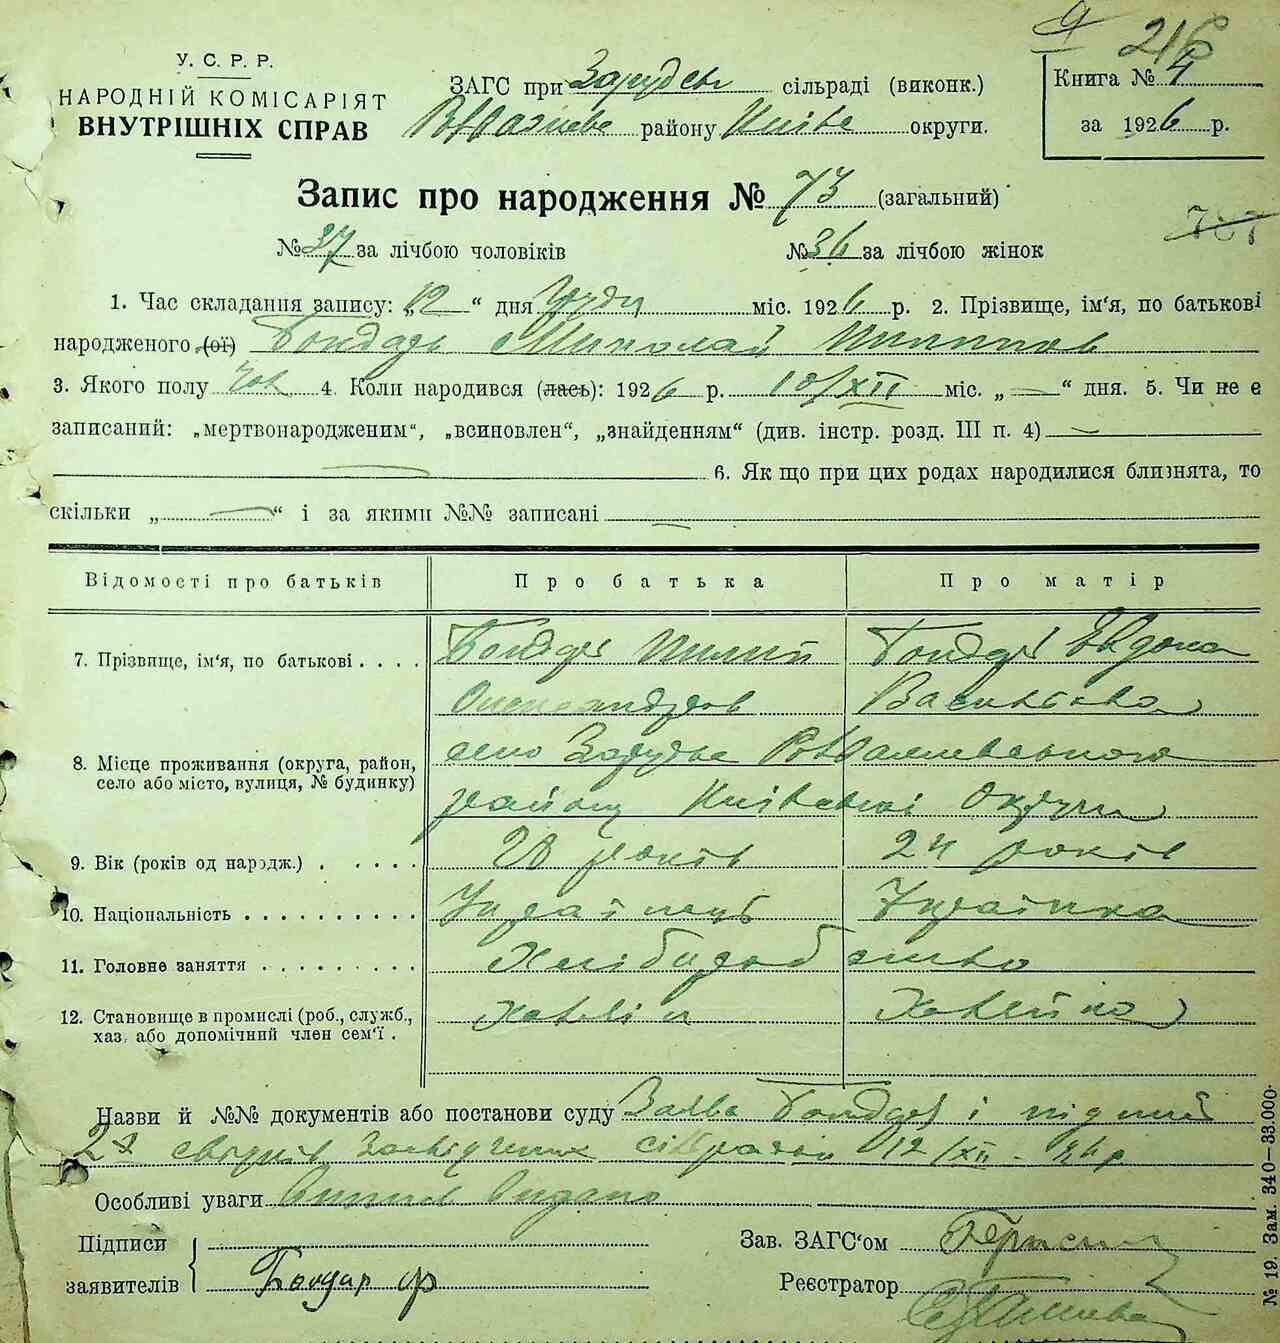 216
У. С. Р. Р.
НАРОДНІЙ КОМІСАРІЯТ
ВНУТРІШНІХ СПРАВ
ЗАГС при сільраді (виконк.)
району Київс округи.
Книга № 4
за 1926 р.
Запис про народження № 73 (загальний)
№ 37 за лічбою чоловіків № 36 за лічбою жінок
1. Час складання запису: „12“ дня грудн міс. 1926 р. 2. Прізвище, ім'я, по батькові
народженого (ої) Бондарь Миколай Пилипов
3. Якого полу чол 4. Коли народився (лась): 1926 р. 10/XII міс. „—“ дня. 5. Чи не є
записаний: „мертвонародженим“, „всиновлен“, „знайденям“ (див. інстр. розд. III п. 4) —
— 6. Як що при цих родах народилися близнята, то
скільки „—“ і за якими №№ записані —
Відомості про батьків Про батька Про матір
7. Прізвище, ім'я, по батькові . . . . Бондар Пилип Бондар Євдокія
Олександров Васильївна
8. Місце проживання (округа, район, село Зарудьє
село або місто, вулиця, № будинку) району Київської Округи
9. Вік (років од народж.) . . . . . 28 років 24 років
10. Національність . . . . . . . . . . Українець Українка
11. Головне заняття . . . . . . . . . Хлібиробство
12. Становище в промислі (роб., служб., Хазяїн Хазяйка
хаз. або допомічний член сем'ї .
Назви й №№ документів або постанови суду Заява Бондар і
2х свідків сільради 12/XII – 26 р
Особливі уваги
Підписи
заявителів Бондар
Зав. ЗАГС'ом
Реєстратор
№ 19. Зам. 340—33.000.